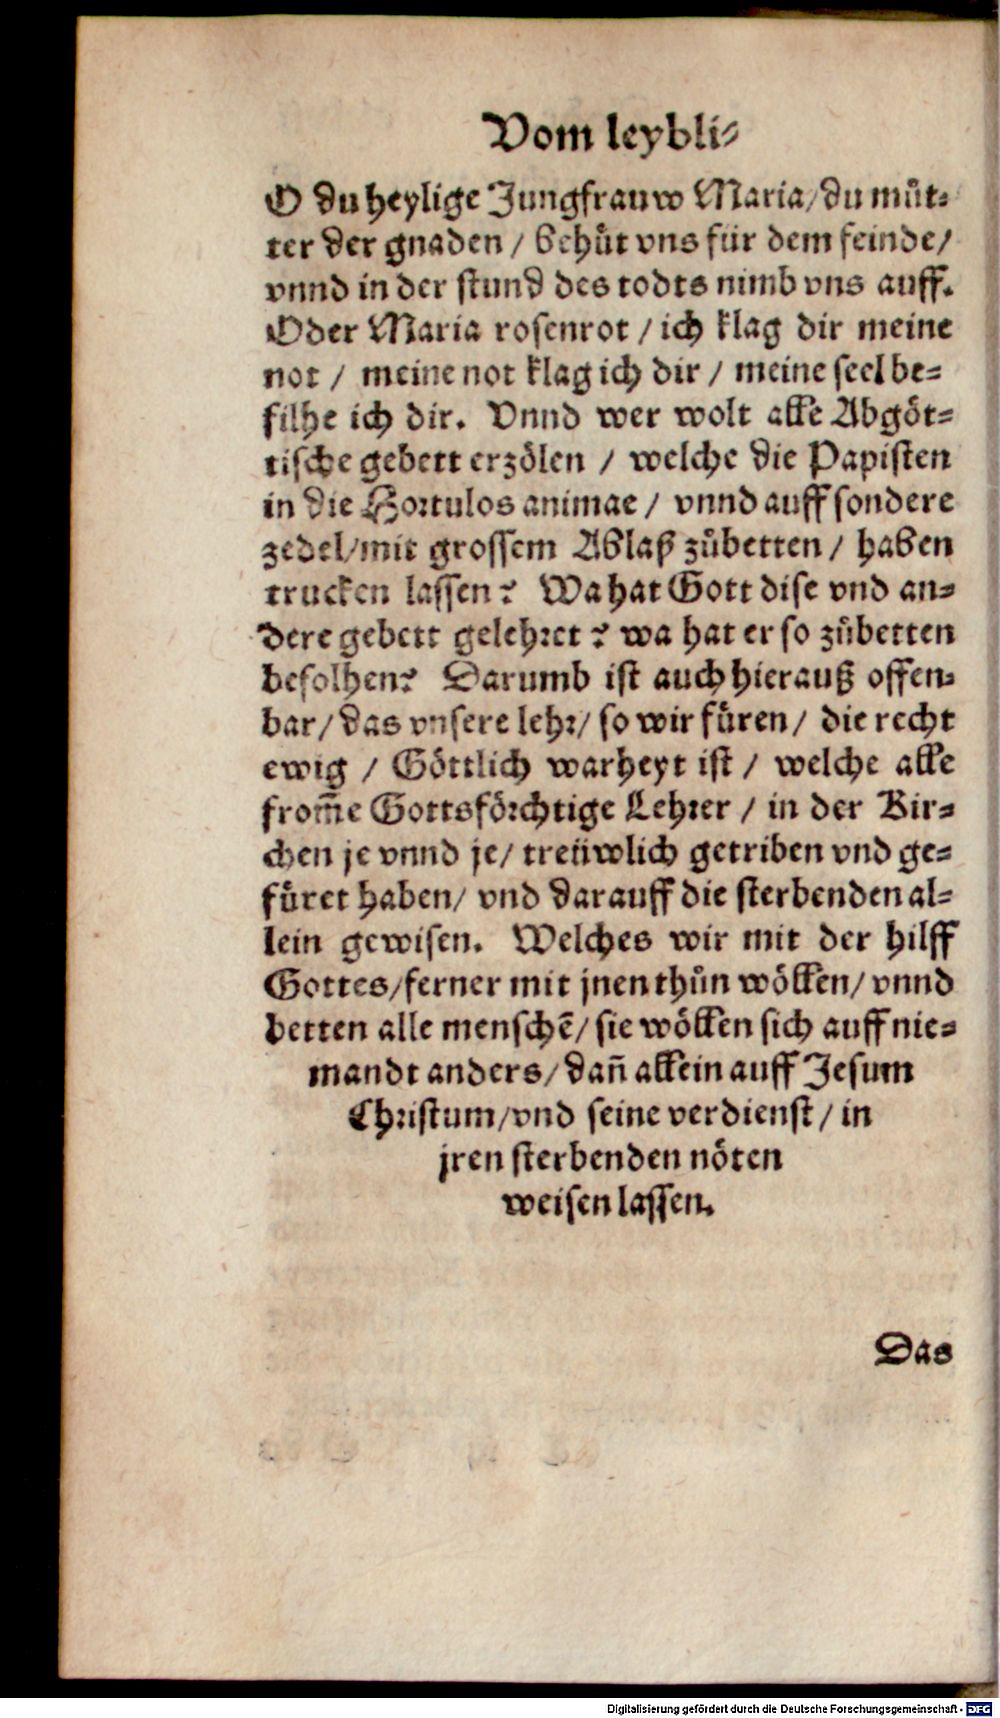 Vom leybli⸗
O du heylige Jungfrauw Maria/ du můt⸗
ter der gnaden / behůt vns für dem feinde/
vnnd in der stund des todts nimb vns auff.
Oder Maria rosenrot / ich klag dir meine
not / meine not klag ich dir / meine seel be⸗
filhe ich dir. Vnnd wer wolt alle Abgöt⸗
tische gebett erzölen / welche die Papisten
in die Hortulos animae / vnnd auff sondere
zedel/ mit grossem Ablaß zůbetten / haben
trucken lassen? Wa hat Gott dise vnd an⸗
dere gebett gelehret? wa hat er so zůbetten
befolhen? Darumb ist auch hierauß offen⸗
bar/ das vnsere lehr/ so wir fůren/ die recht
ewig / Göttlich warheyt ist / welche alle
from̃e Gottsförchtige Lehrer / in der Kir⸗
chen je vnnd je/ treüwlich getriben vnd ge⸗
fůret haben/ vnd darauff die sterbenden al⸗
lein gewisen. Welches wir mit der hilff
Gottes/ ferner mit jnen thůn wöllen/ vnnd
betten alle menschē/ sie wöllen sich auff nie⸗
mandt anders/ dañ allein auff Jesum
Christum/ vnd seine verdienst/ in
jren sterbenden nöten
weisen lassen.
Das
Digitalisierung gefördert durch die Deutsche Forschungsgemeinschaft - DFG